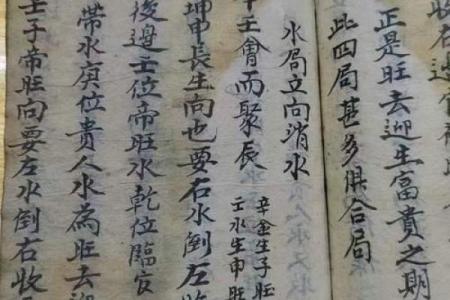 收右邊官
正是旺去迎生富貴之期
此四局甚多俱合局
水局立向消水
辛壬會而聚辰
辛金生子旺
壬水生申旺
坤申長生向也要右水倒左
後邊壬位帝旺水乾位臨官
帶水庚位貴人水為旺去迎
壬子帝旺向要左水倒右收